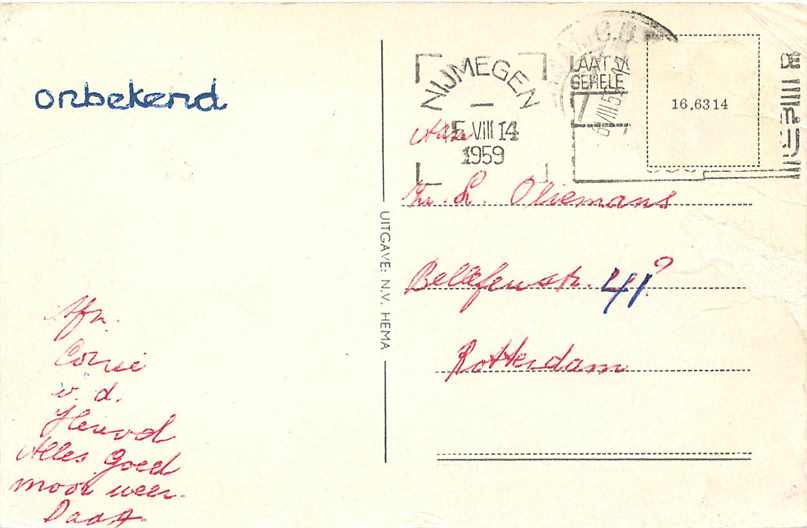 onbekend
NIJMEGEN
5 VIII 14
1959
LAAT
GEHELE
DE
16.6314
Aan
L. Oliemans
41?
Rotterdam
UITGAVE: N.V. HEMA
Afz.
Corrie
v. d.
Heuvel
Alles goed
mooi weer.
Daag